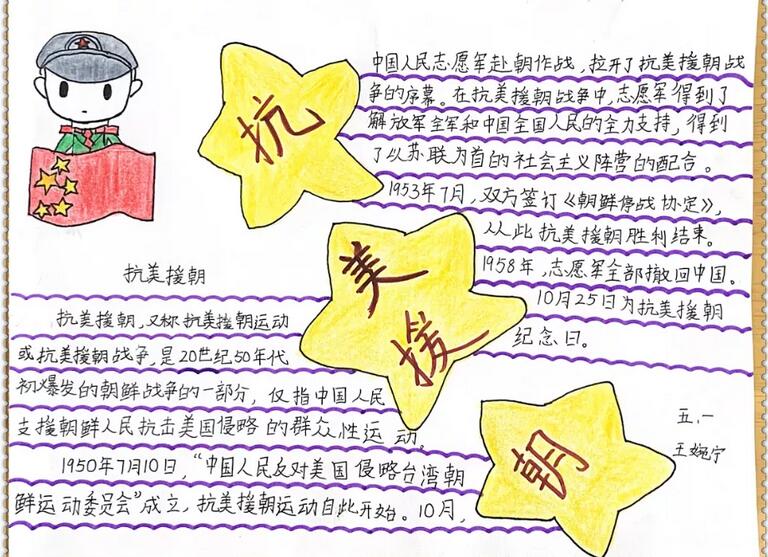 抗
美
援
朝
抗美援朝
抗美援朝，又称抗美援朝运动
或抗美援朝战争，是20世纪50年代
初爆发的朝鲜战争的一部分，仅指中国人民
支援朝鲜人民抗击美国侵略的群众性运动。
1950年7月10日，“中国人民反对美国侵略台湾朝
鲜运动委员会”成立，抗美援朝运动自此开始。10月，
中国人民志愿军赴朝作战，拉开了抗美援朝战
争的序幕。在抗美援朝战争中，志愿军得到了
解放军全军和中国全国人民的全力支持，得到
了以苏联为首的社会主义阵营的配合。
1953年7月，双方签订《朝鲜停战协定》，
从此抗美援朝胜利结束。
1958年，志愿军全部撤回中国。
10月25日为抗美援朝
纪念日。
五.一
王婉宁